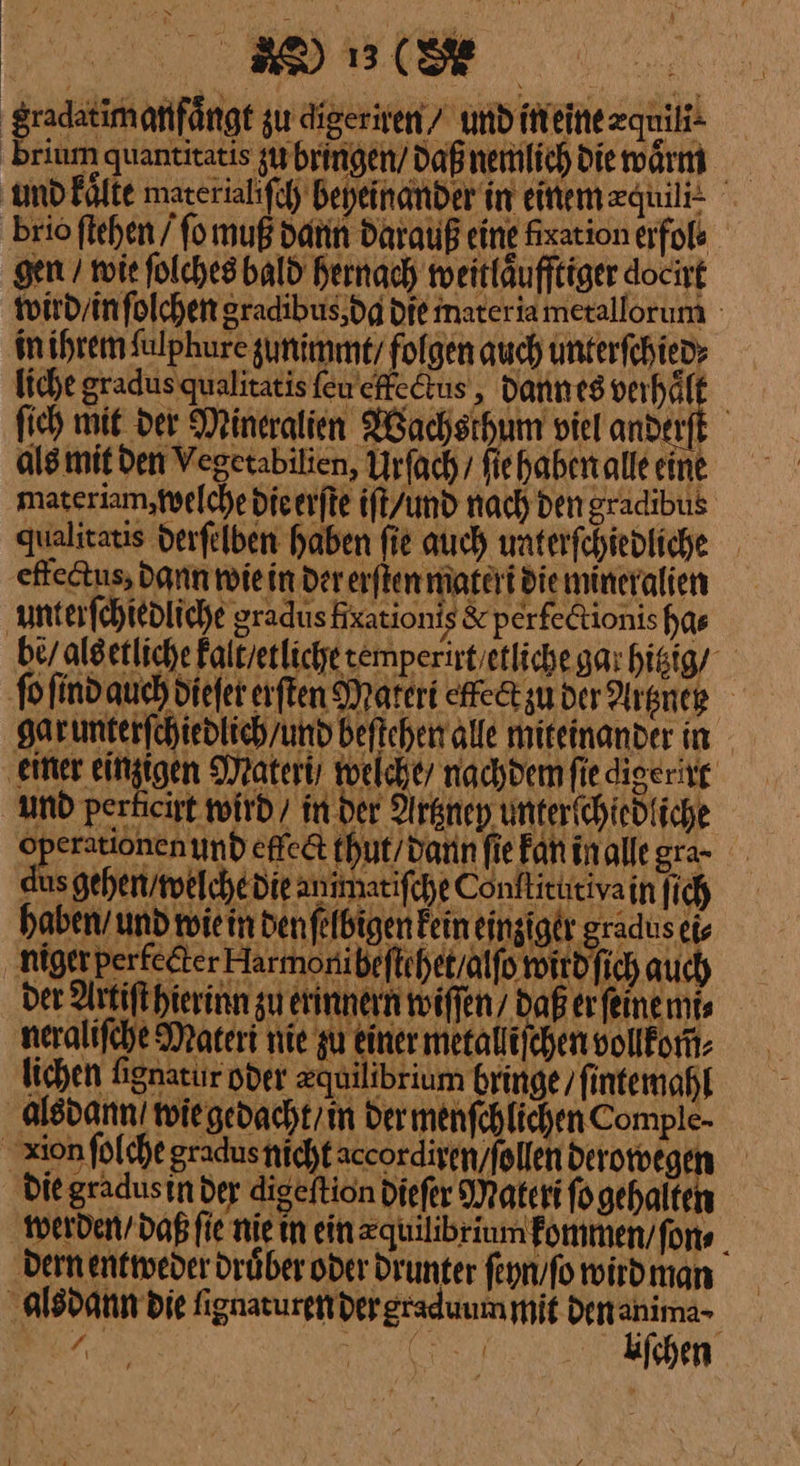 ) 13 (
gradatim anfåugt zu digeriren / und in eine æquili-
brium quantitatis zu bringen / daß nemlich die wårm
und kålte materialiſch beyeinander in einem æquili-
brio ſtehen / ſo muß dann darauß eine fixation erfol-
gen / wie ſolches bald hernach weitlåufftiger docirt
wird / in ſolchen gradibus, da die materia metallorum
in ihrem ſulphure zunimmt / folgen auch unterſchied-
liche gradus qualitatis ſeu effectus, dann es verhålt
ſich mit der Mineralien Wachsthum viel anderſt
als mit den Vegetabilien, Urſach / ſie haben alle eine
materiam, welche die erſte iſt / und nach den gradibus
qualitatis derſelben haben ſie auch unterſchiedliche
effectus, dann wie in der erſten materi die mineralien
unterſchiedliche gradus fixationis & perfectionis ha-
bē / als etliche kalt / etliche temperirt / etliche gar hitzig /
ſo ſind auch dieſer erſten Materi effect zu der Artzney
gar unterſchiedlich / und beſtehen alle miteinander in
einer einzigen Materi / welche / nachdem ſie digerirt
und perficirt wird / in der Artzney unterſchiedliche
operationen und effect thut / dann ſie kan in alle gra-
dus gehen / welche die animatiſche Conſtitutiva in ſich
haben / und wie in denſelbigen kein einziger gradus ei-
niger perfecter Harmoni beſtehet / alſo wird ſich auch
der Artiſt hierinn zu erinnern wiſſen / daß er ſeine mi-
neraliſche Materi nie zu einer metalliſchen vollkom̃-
lichen ſignatur oder æquilibrium bringe / ſintemahl
alsdann / wie gedacht / in der menſchlichen Comple-
xion ſolche gradus nicht accordiren / ſollen derowegen
die gradus in der digeſtion dieſer Materi ſo gehalten
werden / daß ſie nie in ein æquilibrium kommen / ſon-
dern entweder drůber oder drunter ſeyn / ſo wird man
alsdann die ſignaturen der graduum mit den anima-
liſchen